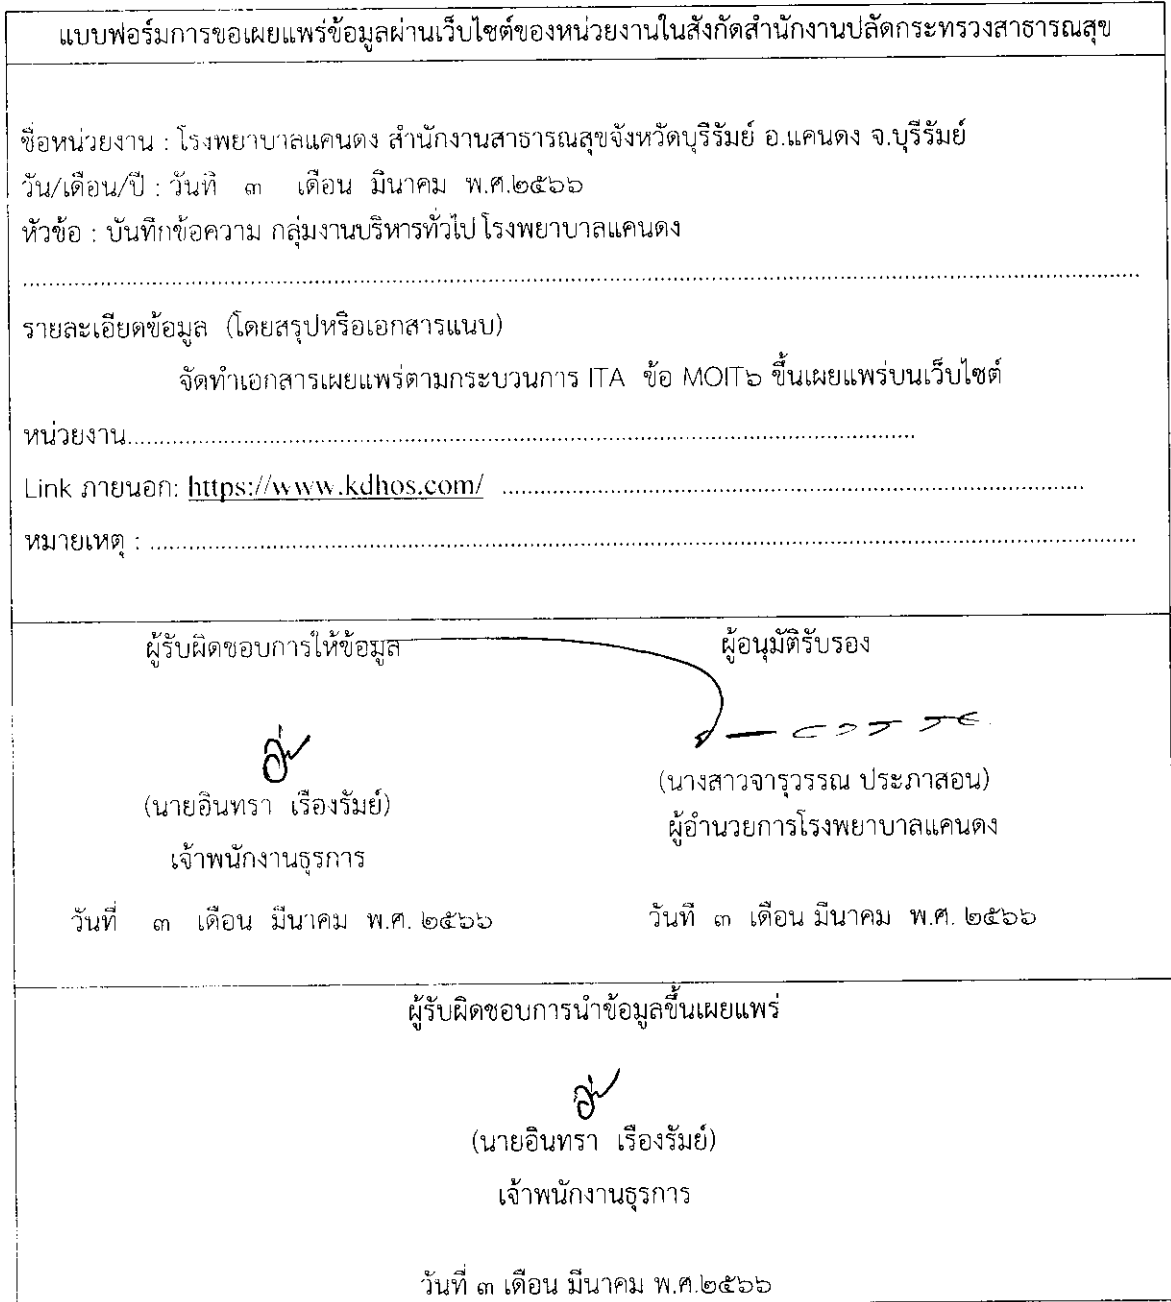 แบบฟอร์มการขอเผยแพร่ข้อมูลผ่านเว็บไซต์ของหน่วยงานในสังกัดสำนักงานปลัดกระทรวงสาธารณสุข
ชื่อหน่วยงาน : โรงพยาบาลแคนดง สำนักงานสาธารณสุขจังหวัดบุรีรัมย์ อ.แคนดง จ.บุรีรัมย์
วัน/เดือน/ปี : วันที่ ๓ เดือน มีนาคม พ.ศ.๒๕๖๖
หัวข้อ : บันทึกข้อความ กลุ่มงานบริหารทั่วไป โรงพยาบาลแคนดง
รายละเอียดข้อมูล (โดยสรุปหรือเอกสารแนบ)
จัดทำเอกสารเผยแพร่ตามกระบวนการ ITA ข้อ MOIT๖ ขึ้นเผยแพร่บนเว็บไซต์
หน่วยงาน....................
Link ภายนอก: https://www.kdhos.com/ ....................
หมายเหตุ : ....................
ผู้รับผิดชอบการให้ข้อมูล ผู้อนุมัติรับรอง
(นายอินทรา เรืองรัมย์) (นางสาวจารุวรรณ ประภาสอน)
เจ้าพนักงานธุรการ ผู้อำนวยการโรงพยาบาลแคนดง
วันที่ ๓ เดือน มีนาคม พ.ศ. ๒๕๖๖ วันที่ ๓ เดือน มีนาคม พ.ศ. ๒๕๖๖
ผู้รับผิดชอบการนำข้อมูลขึ้นเผยแพร่
(นายอินทรา เรืองรัมย์)
เจ้าพนักงานธุรการ
วันที่ ๓ เดือน มีนาคม พ.ศ.๒๕๖๖